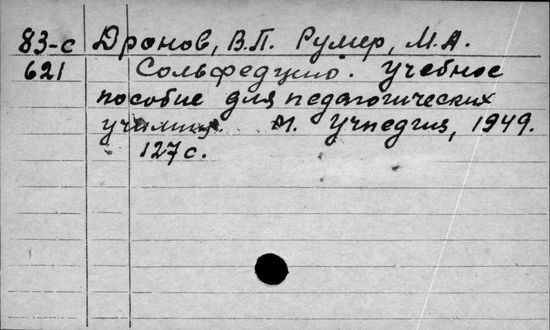 83-с Дронов, В.П. Румер, М.А.
621 Сольфеджио. Учебное
пособие для педагогических
училищ. М. Учпедгиз, 1949.
127 с.